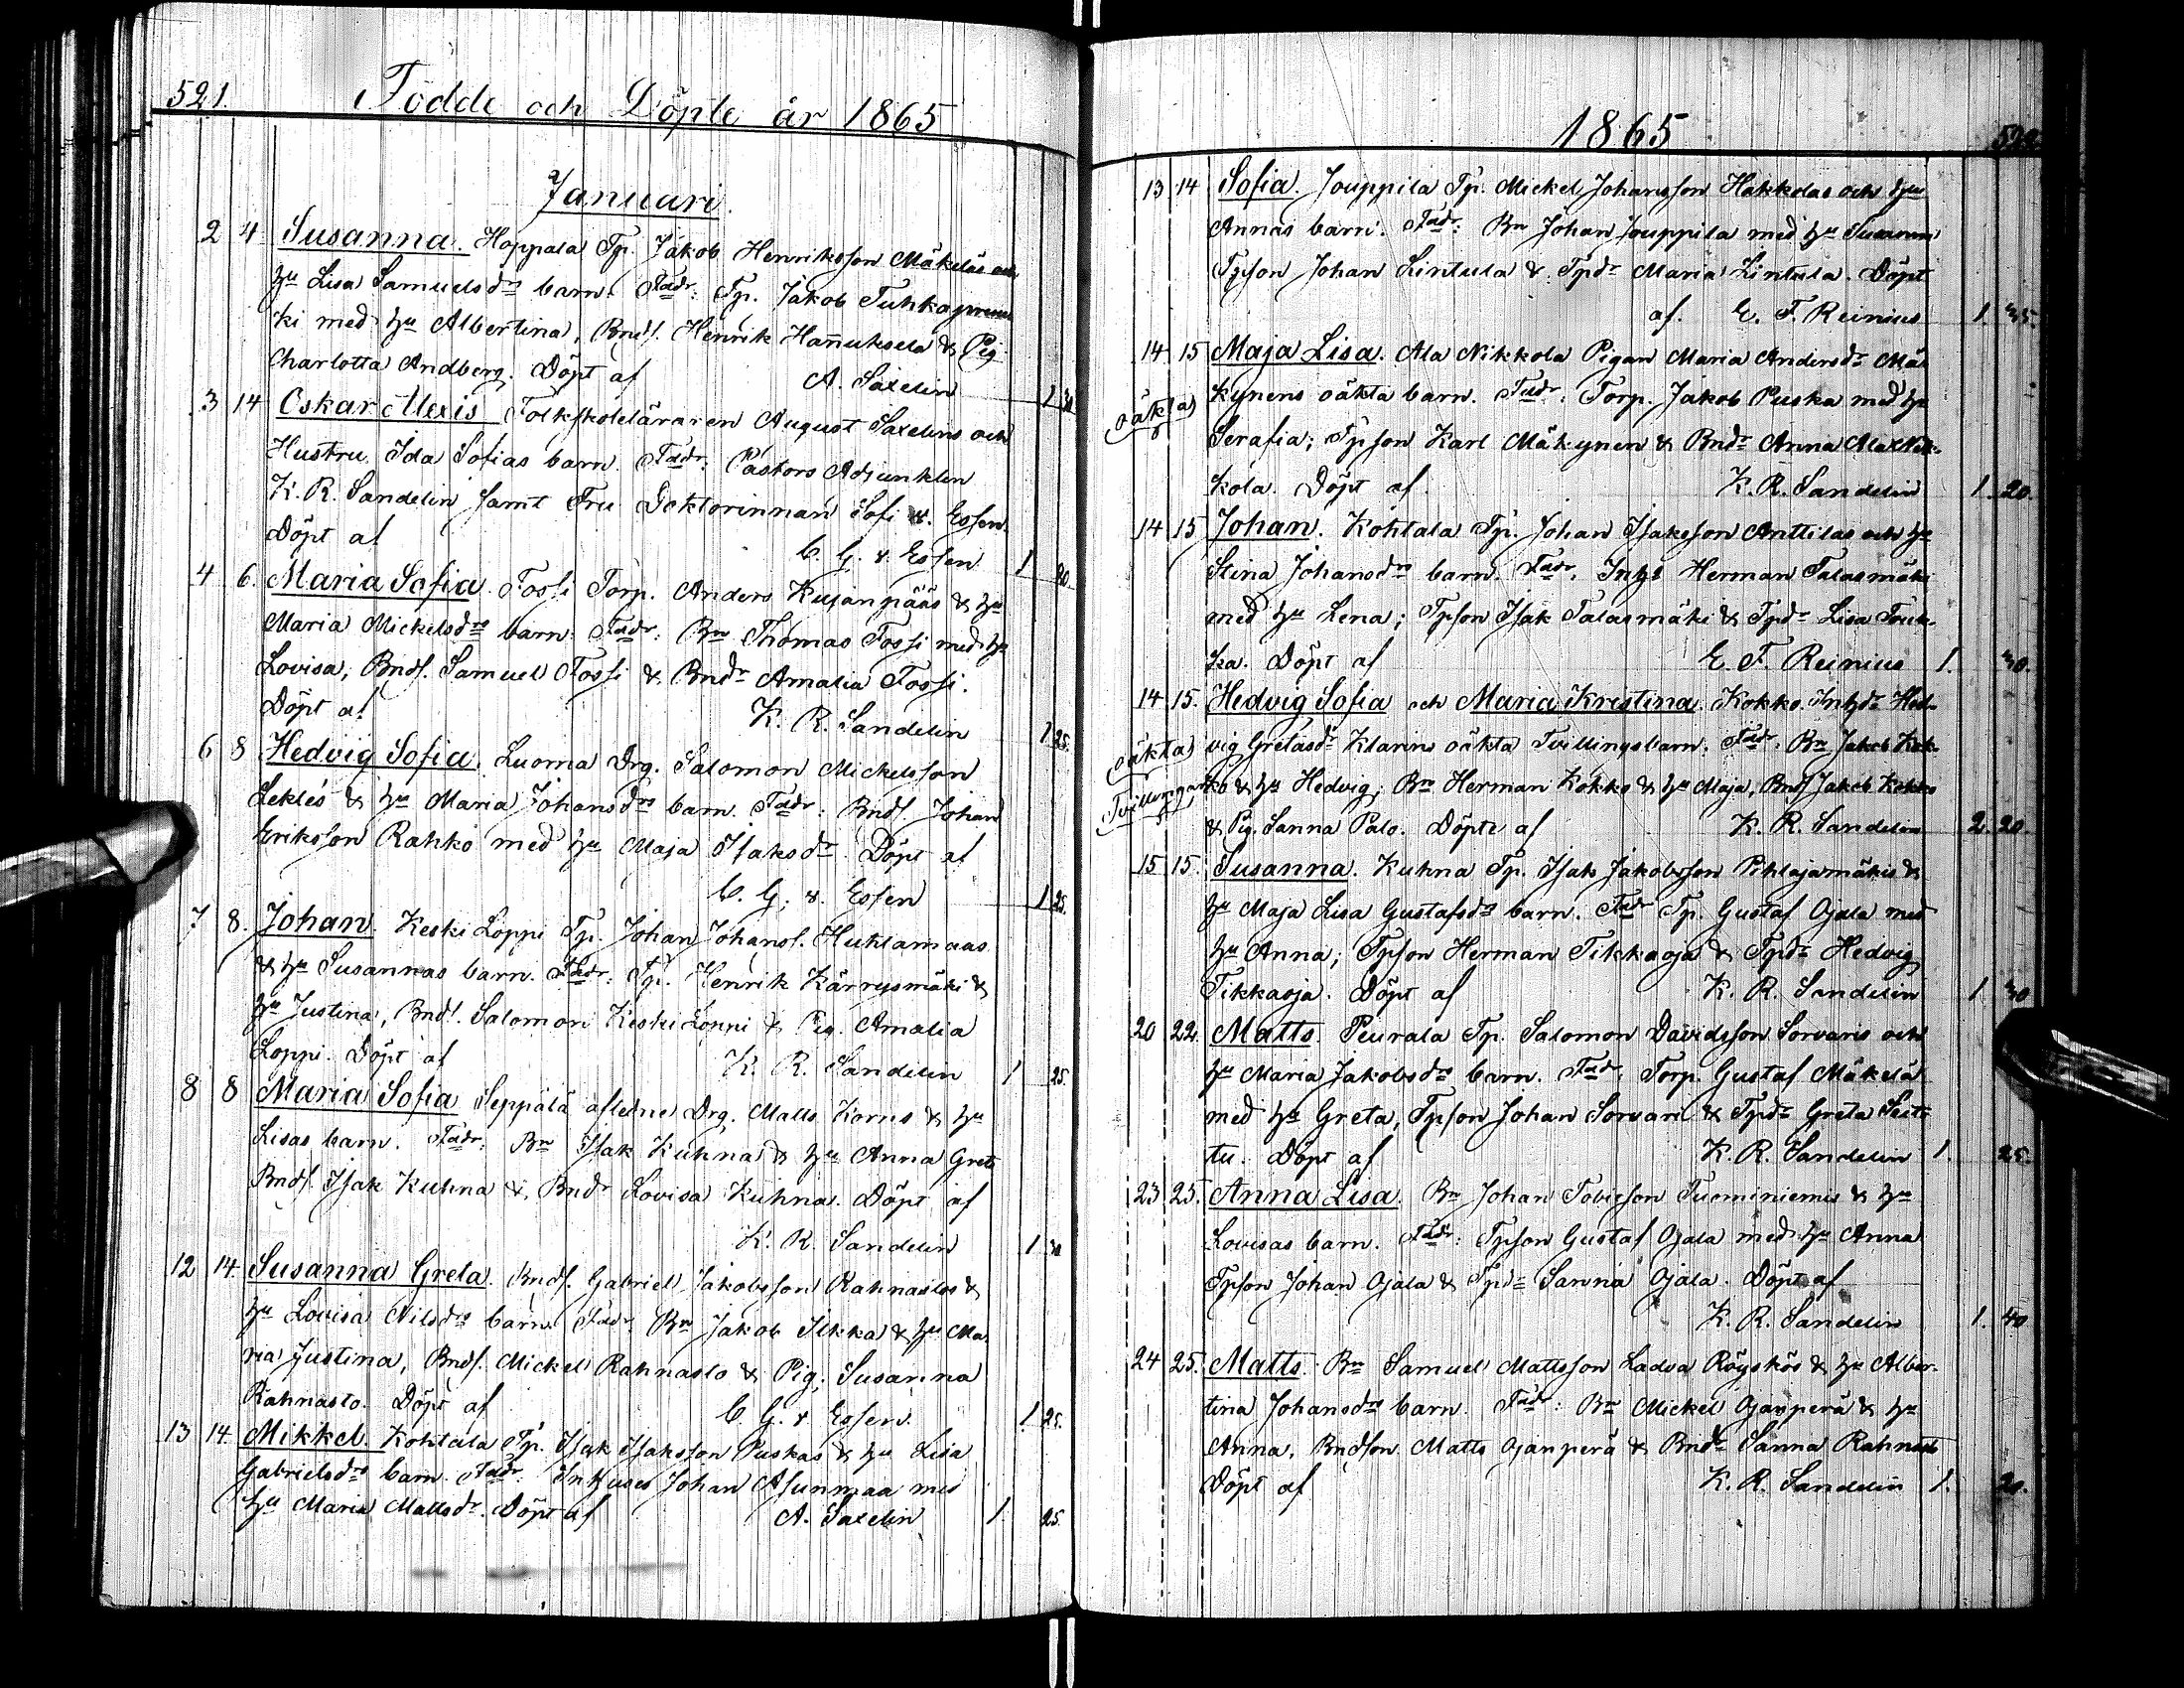 521.
Födde och Döpte år 1865
Januari.
2 4 Susanna. Hoppala Tp. Jakob Henriksson Mäkeläs och
hu Lisa Samuelsdrs barn. Faddr: Tp. Jakob Tuhka
ki med hu Albertina, Bnds. Henrik Hannuksela & Pig
Charlotta Andberg. Döpt af A. Saxelin 1
3 14 Oskar Alexis Folkskoleläraren August Saxelins och
Hustru Ida Sofias barn. Faddr: Pastors Adjunkten
K. R. Sandelin samt Fru Doktorinnan Sofi v. Essen.
Döpt af C. G. v. Essen 1
4 6. Maria Sofia. Fossi Torp. Anders Kujanpääs & hu
Maria Mickelsdrs barn. Faddr: Bn Thomas Fossi med hu
Lovisa, Bnds. Samuel Fossi & Bndr Amalia Fossi.
Döpt af K. R. Sandelin 1 25.
6 8 Hedvig Sofia. Luoma Drg. Salomon Mickelsson
Leklés & hu Maria Johansdrs barn. Faddr: Bnds. Johan
Eriksson Rahko med hu Maja Isaksdr. Döpt af
C. G. v. Essen 1 25.
7 8. Johan. Keski Loppi Tp. Johan Johans. Huhtamaas
& hu Susannas barn. Faddr: Tp. Henrik Kärrysmäki &
hu Justina, Bnds. Salomon Keski Loppi & Pig. Amalia
Loppi. Döpt af K. R. Sandelin 1 25.
8 8 Maria Sofia Seppälä aflidne Drg. Matts Korns & hu
Lisas barn. Faddr: Bn Isak Kuhna & hu Anna Greta
Bnds. Isak Kuhna &, Bndr Lovisa Kuhna. Döpt af
K. R. Sandelin 1
12 14. Susanna Greta. Bnds. Gabriel Jakobsson Rahnastos &
hu Lovisa Nilsdrs barn. Faddr: Bn Jakob Ilkka & hu Ma
ria Justina, Bnds. Mickel Rahnasto & Pig. Susanna
Rahnasto. Döpt af C. G. v. Essen. 1 25.
13 14. Mikkel. Kohtala Tp. Isak Isaksson Puskas & hu Lisa
Gabrielsdrs barn. Faddr: Inhyses Johan Asunmaa med
hu Maria Mattsdr. Döpt af A. Saxelin 1. 25.
1865
522.
13 14 Sofia. Jouppila Tp. Mickel Johansson Hakkolas och hu
Annas barn. Faddr: Bn Johan Jouppila med hu Susanna
Tpson Johan Lintula & Tpdr Maria Lintula. Döpt
af. E. F. Reinius 1.
14 15 Maja Lisa. Ala Nikkola Pigan Maria Andersdr Mä
oäkta) kynens oäkta barn. Faddr: Torp. Jakob Puska med hu
Serafia; Tpson Karl Mäkynen & Bndr Anna Ala Nik-
kola. Döpt af. K. R. Sandelin 1. 20.
14 15 Johan. Kohtala Tp. Johan Isaksson Anttilas och hu
Stina Johansdrs barn. Faddr: Inhs Herman Talasmäki
med hu Lena; Tpson Isak Talasmäki & Tpdr Lisa Touk-
ka. Döpt af E. F. Reinius 1.
14 15. Hedvig Sofia och Maria Kristina. Kokko Inhdr Hed-
oäkta) vig Gretasdr Klarins oäkta Tvillingsbarn. Faddr: Bn Jakob Kok-
Tvillingar ko & hu Hedvig; Bn Herman Kokko & hu Maja, Bnds Jakob Kokko
& Pig. Sanna Palo. Döpte af K. R. Sandelin 2. 20.
15 15. Susanna. Kuhna Tp. Isak Jakobsson Pihlajamäkis &
hu Maja Lisa Gustafsdrs barn. Faddr Tp. Gustaf Ojala med
hu Anna; Tpson Herman Tikkaoja & Tpdr Hedvig
Tikkaoja. Döpt af K. R. Sandelin 1
20 22. Matts. Peurala Tp. Salomon Davidsson Sorvaris och
hu Maria Jakobsdrs barn. Faddr: Torp. Gustaf Mäkelä
med hu Greta, Tpson Johan Sorvari & Tpdr Greta
tu. Döpt af K. R. Sandelin 1. 25.
23 25. Anna Lisa. Bn Johan Tobiesson Tuominiemis & hu
Lovisas barn. Faddr: Tpson Gustaf Ojala med hu Anna
Tpson Johan Ojala & Tpdr Sanna Ojala. Döpt af
K. R. Sandelin 1. 40
24 25. Matts. Bn Samuel Mattsson Ladva Röyskös & hu Alber-
tina Johansdrs barn. Faddr: Bn Mickel Ojanperä & hu
Anna, Bndson Matts Ojanperä & Bndr Sanna Rahnasto
Döpt af K. R. Sandelin 1.